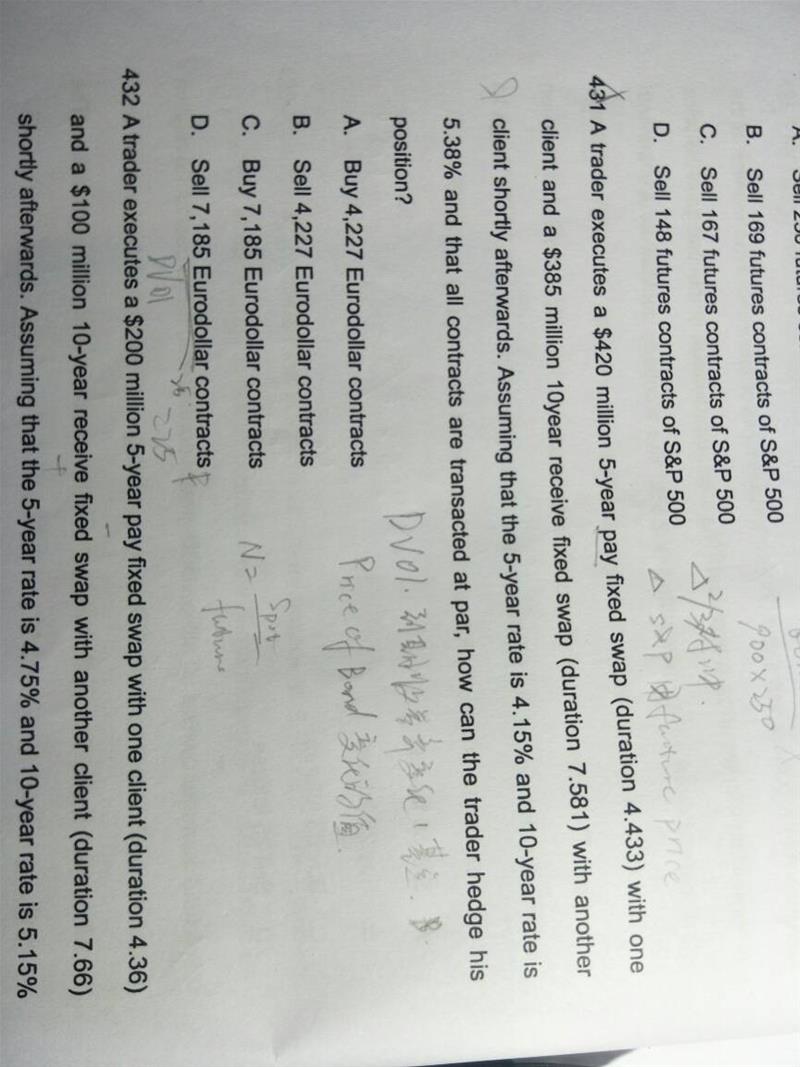 B. Sell 169 futures contracts of S&P 500
C. Sell 167 futures contracts of S&P 500
D. Sell 148 futures contracts of S&P 500
900×250
△ S&P future price
431 A trader executes a $420 million 5-year pay fixed swap (duration 4.433) with one
client and a $385 million 10year receive fixed swap (duration 7.581) with another
client shortly afterwards. Assuming that the 5-year rate is 4.15% and 10-year rate is
5.38% and that all contracts are transacted at par, how can the trader hedge his
position?
DV01.
A. Buy 4,227 Eurodollar contracts
Price of Bond
B. Sell 4,227 Eurodollar contracts
C. Buy 7,185 Eurodollar contracts
N = spot
future
D. Sell 7,185 Eurodollar contracts
DV01
432 A trader executes a $200 million 5-year pay fixed swap with one client (duration 4.36)
and a $100 million 10-year receive fixed swap with another client (duration 7.66)
shortly afterwards. Assuming that the 5-year rate is 4.75% and 10-year rate is 5.15%